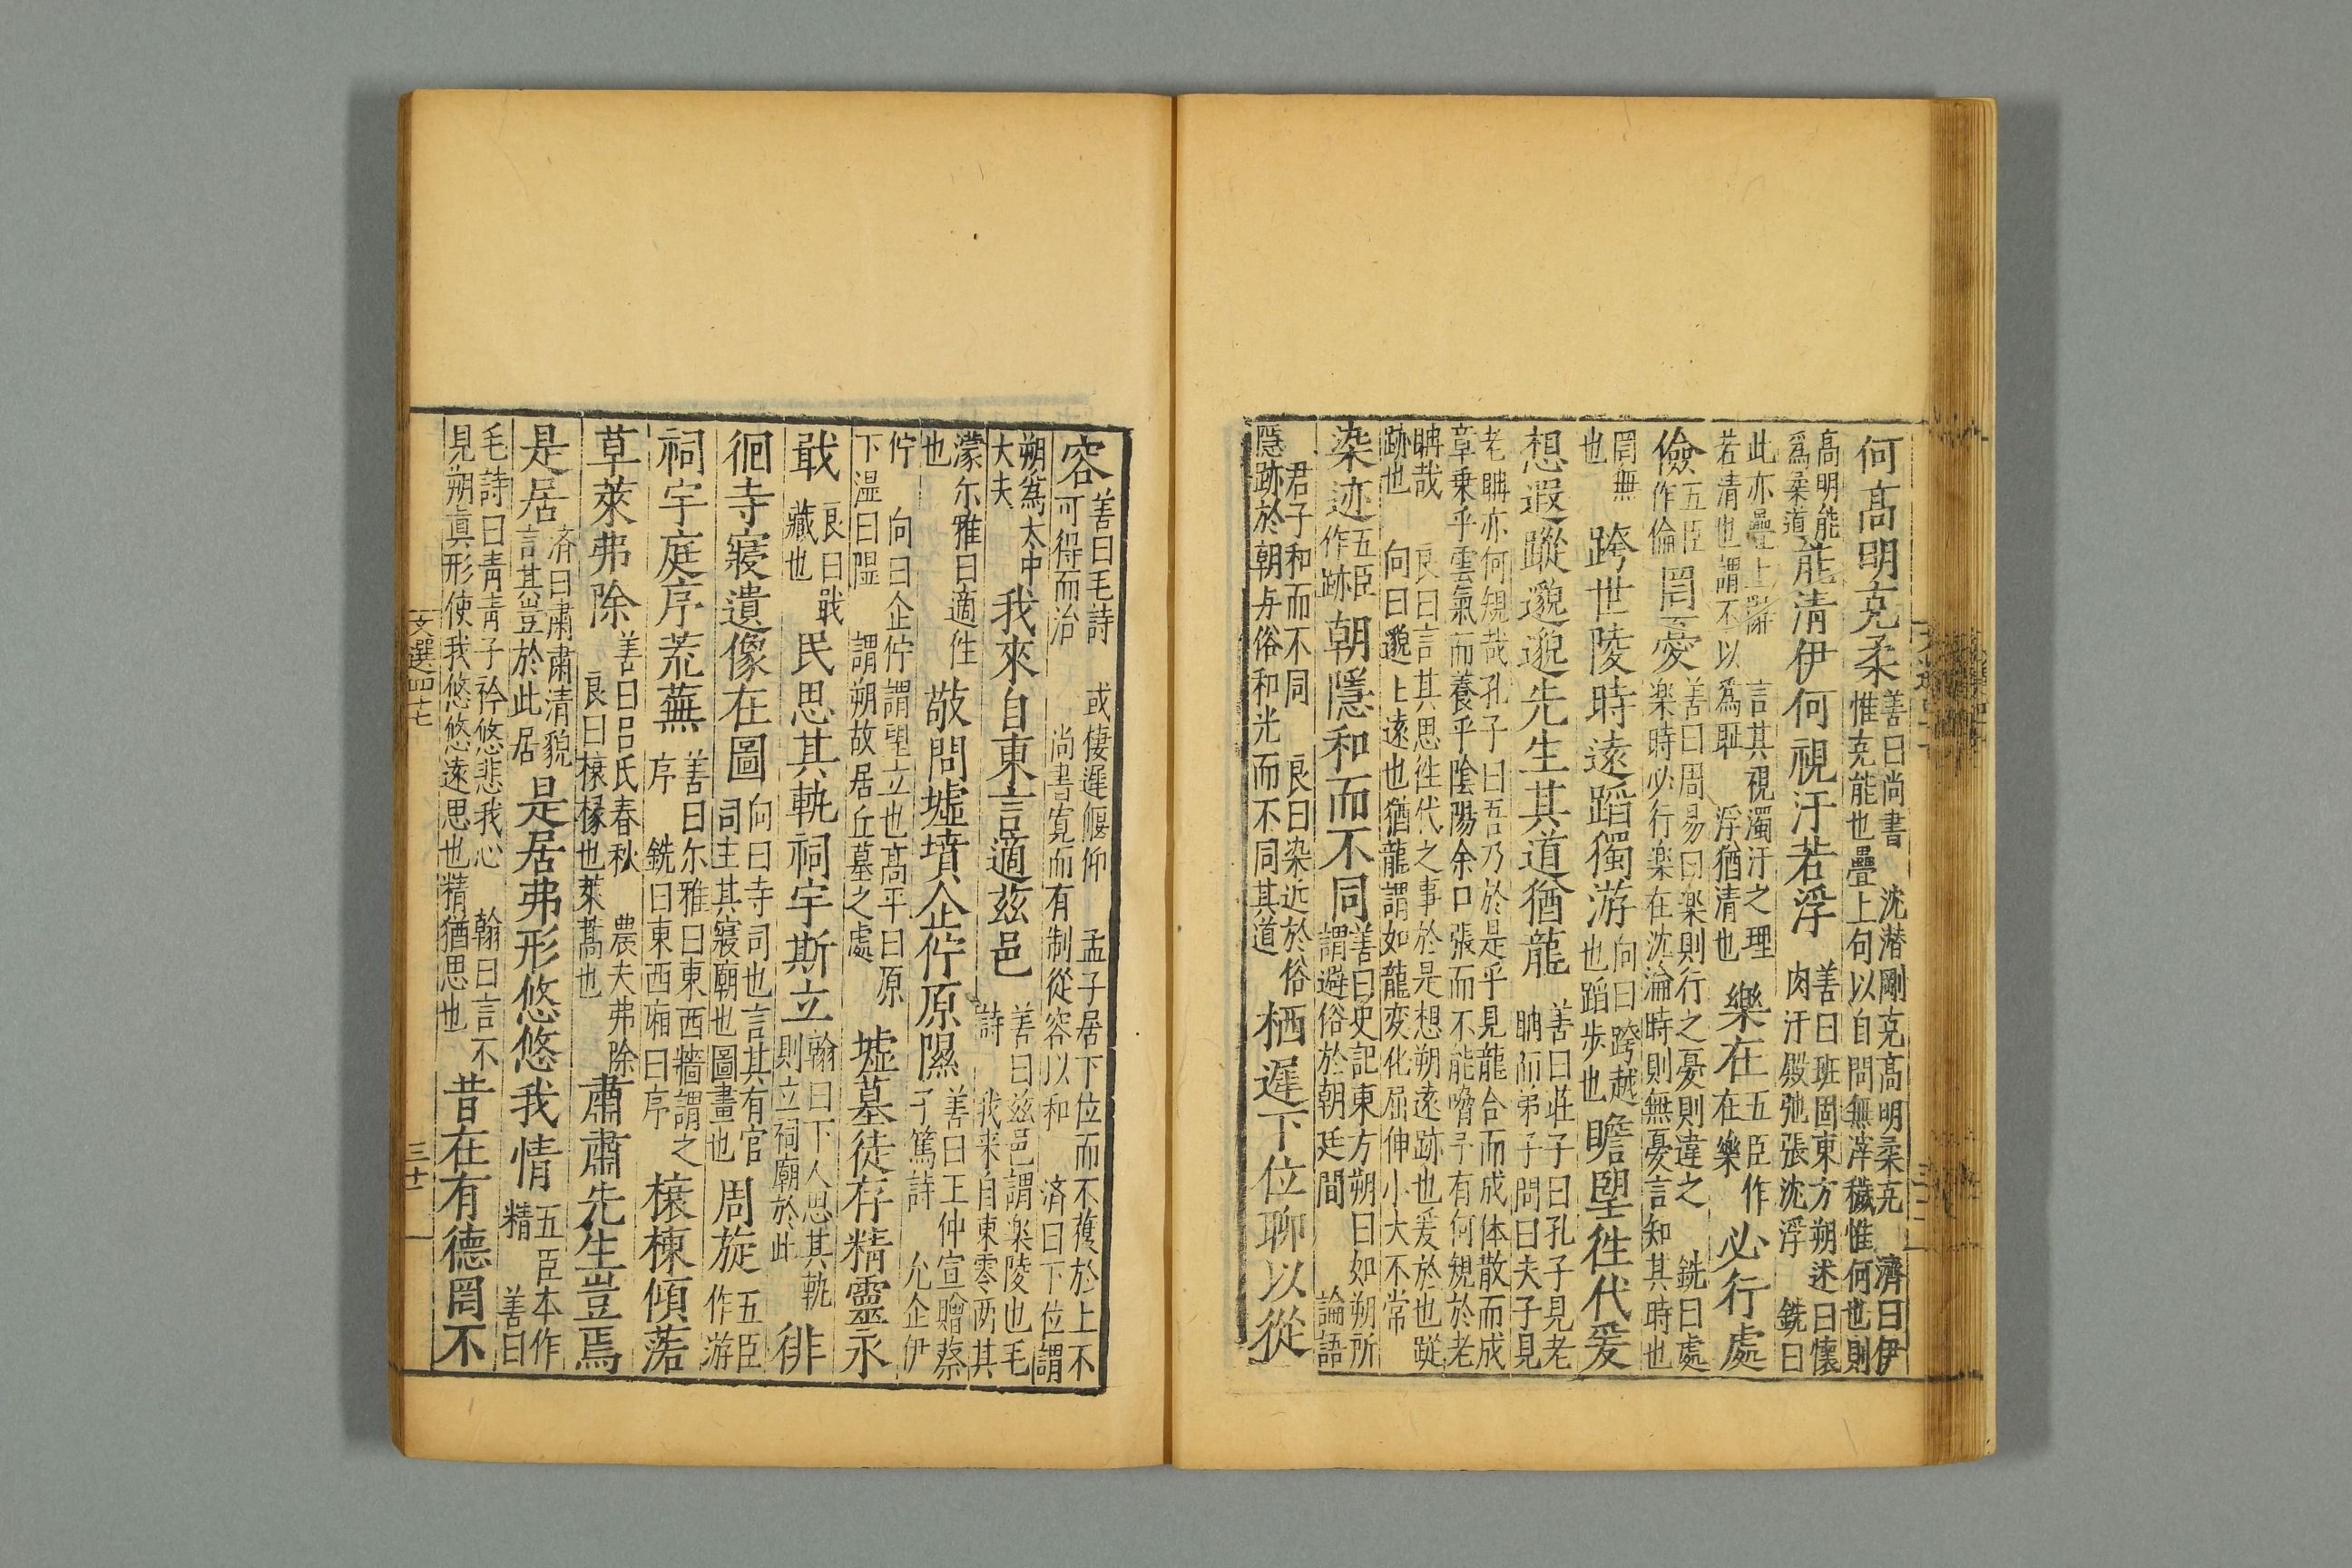 何高明克柔善曰尚書 沈潜剛克高明柔克 濟曰伊惟克能也疊上句以自問無滓穢惟何也則
高明能爲柔道能清伊何視汙若浮善曰班固東方朔述曰懷肉汙殿弛張沈浮 銑曰
此亦疊上辭 言其視濁汙之理若清也謂不以爲耻 浮猶清也樂在五臣作在樂必行處
儉五臣作倫罔憂善曰周易曰楽則行之憂則違之 銑曰處楽時必行楽在沈淪時則無憂言知其時也
罔無也跨世陵時遠蹈獨游向曰跨越也蹈步也瞻望徃代爰
想遐蹤邈邈先生其道猶龍善曰莊子曰孔子見老聃而弟子問曰夫子見
老聃亦何規哉孔子曰吾乃於是乎見龍合而成体散而成章乗乎雲氣而養乎陰陽余口張而不能嗋予有何規於老
聃哉 良曰言其思徃代之事於是想朔遠跡也爰於也蹤跡也 向曰邈上遠也猶龍謂如龍変化屈伸小大不常
染迹五臣作跡朝隱和而不同善曰史記東方朔曰如朔所謂避俗於朝廷間 論語
君子和而不同 良曰染近於俗隱跡於朝与俗和光而不同其道栖遲下位聊以從
容善曰毛詩 或棲遲偃仰 孟子居下位而不獲於上不可得而治 尚書寬而有制從容以和 済曰下位謂
朔為太中大夫我來自東言適兹邑善曰兹邑謂楽陵也毛詩 我来自東零两其
濛尔雅曰適徃也敬問墟墳企佇原隰善曰王仲宣贈蔡子篤詩 允企伊
佇 向曰企佇謂望立也高平曰原下濕曰隰 謂朔故居丘墓之處墟墓徒存精靈永
戢良曰戢藏也民思其軌祠宇斯立翰曰下人思其軌則立祠廟於此徘
徊寺寢遺像在圖向曰寺司也言其有官司主其寢廟也圖畫也周旋五臣作游
祠宇庭序荒蕪善曰尔雅曰東西牆謂之序 銑曰東西廂曰序榱棟傾落
草萊弗除善曰呂氏春秋 農夫弗除 良曰榱椽也萊蒿也肅肅先生豈焉
是居済曰肅肅清貌言其豈於此居是居弗形悠悠我情五臣本作精 善曰
毛詩曰青青子衿悠悲我心 翰曰言不見朔真形使我悠悠遠思也精猶思也昔在有德罔不
文選四十七
三十一